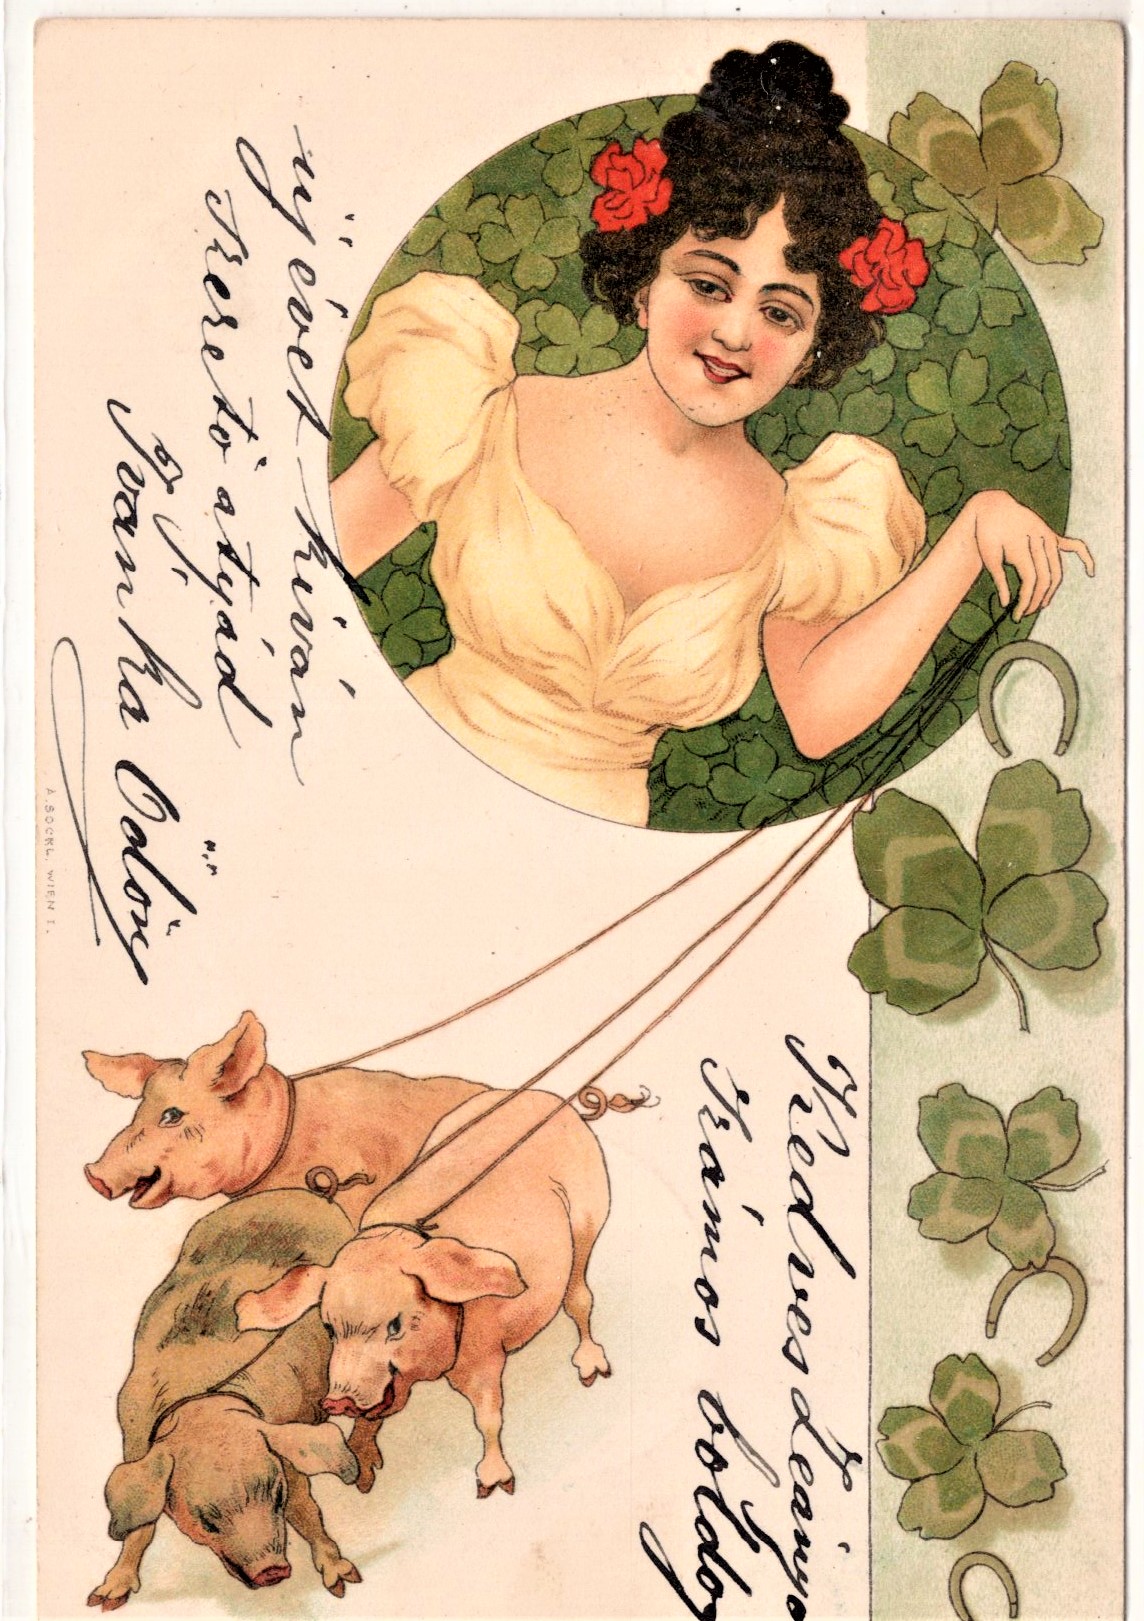 Kedves leányo
Számos boldog
uj évet kíván
szerető atyád
Ivánka Ödön
A. SOCKL, WIEN I.